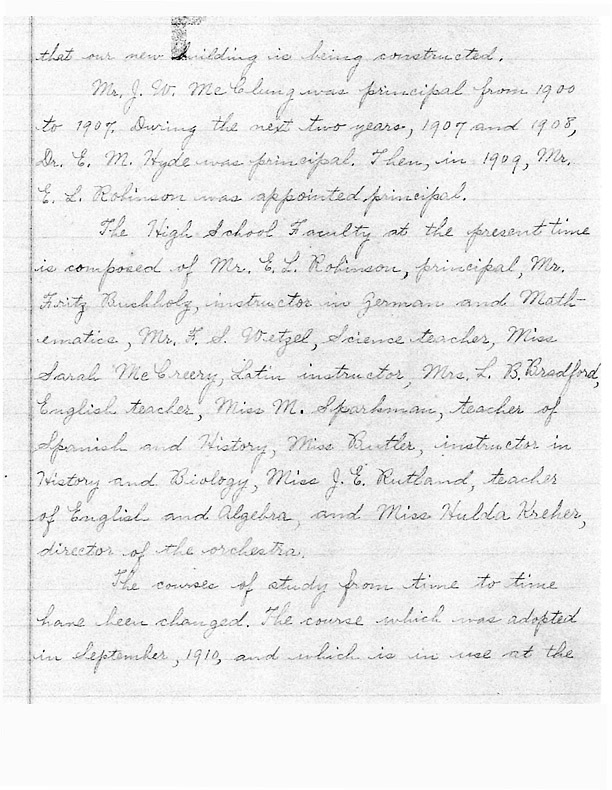 that our new building is being constructed.
Mr. J. W. McClung was principal from 1900
to 1907. During the next two years, 1907 and 1908,
Dr. E. M. Hyde was principal. Then, in 1909, Mr.
E. L. Robinson was appointed principal.
The High School Faculty at the present time
is composed of Mr. E. L. Robinson, principal, Mr.
Fritz Buchholz, instructor in German and Math-
ematics, Mr. F. S. Wetzel, Science teacher, Miss
Sarah McCreery, Latin instructor, Mrs. L. B. Bradford,
English teacher, Miss M. Sparkman, teacher of
Spanish and History, Miss Butler, instructor in
History and Biology, Miss J. E. Rutland, teacher
of English and Algebra, and Miss Hulda Kreher,
director of the orchestra.
The courses of study from time to time
have been changed. The course which was adopted
in September, 1910, and which is in use at the